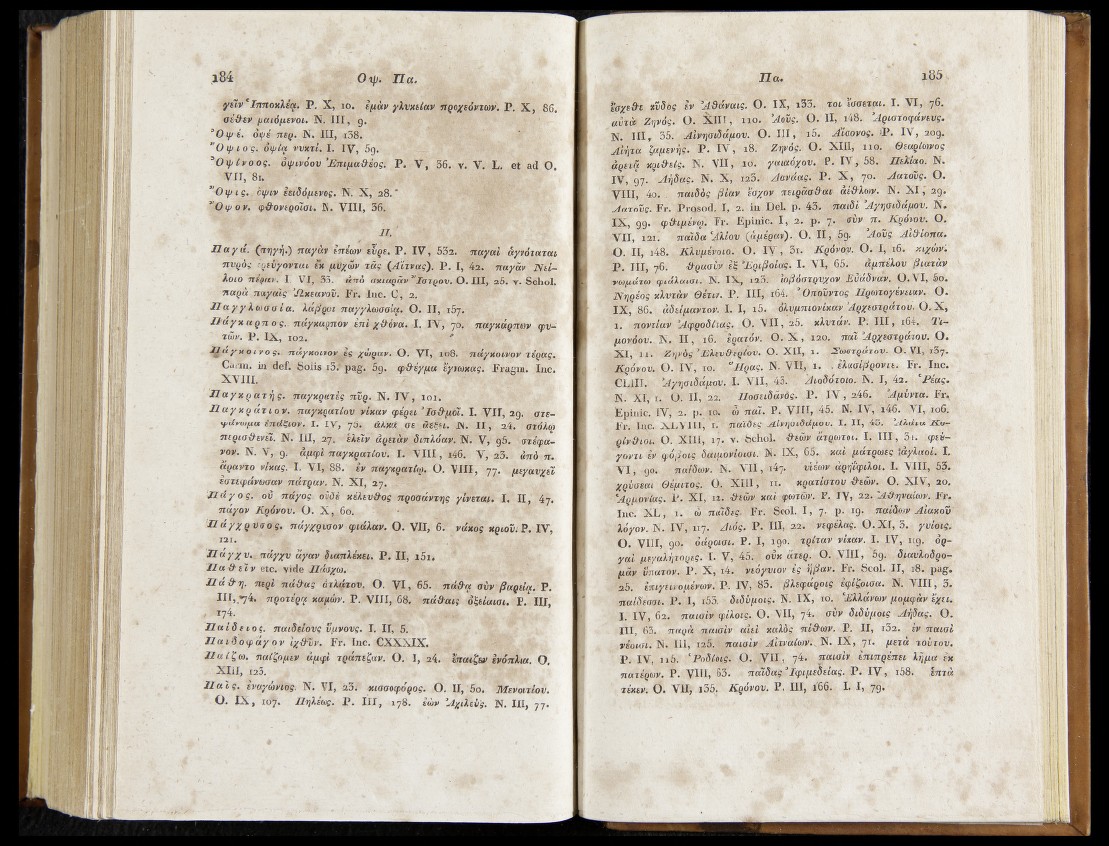 184 Οψ. Πα.
γεῖν Ἱπποκλέᾳ. P. X, 10. ἐμὰν γλυκεῖαν προχεόντων. P. X, 86.
σέθεν μαιόμενοι. N. III, 9.
Ὀψέ. ὀψέ περ. N. III, 138.
Ὄψιος. ὀψίᾳ νυκτί. I. IV, 59.
Ὀψίνοος. ὀψινόου Ἐπιμαθέος. P. V, 36. v. V. L. et ad O.
VII, 81.
Ὄψις. ὄψιν ἐειδόμενος. N. X, 28.
Ὄψον. φθονεροῖσι. N. VIII, 36.
Π.
Παγά. (πηγή.) παγὰν ἐπέων εὗρε. P. IV, 532. παγαὶ ἁγνόταται
πυρὸς ἐρεύγονται ἐκ μυχῶν τᾶς (Αἴτνας). P. I, 42. παγᾶν Νεί-
λοιο πέραν. I. VI, 33. ἀπὸ σκιαρᾶν Ἴστρου. O. III, 25. v. Schol.
παρὰ παγαῖς Ὠκεανοῦ. Fr. Inc. C, 2.
Παγγλωσσία. λάβροι παγγλωσσίᾳ. O. II, 157.
Πάγκαρπος. πάγκαρπον ἐπὶ χθόνα. I. IV, 70. παγκάρπων φυ-
τῶν. P. IX, 102.
Πάγκοινος. πάγκοινον ἐς χώραν. O. VI, 108. πάγκοινον τέρας.
Carm. in def. Solis 13. pag. 59. φθέγμα ἔγνωκας. Fragm. Inc.
XVIII.
Παγκρατής. παγκρατὲς πῦρ. N. IV, 101.
Παγκράτιον. παγκρατίου νίκαν φέρει Ἰσθμοῖ. I. VII, 29. στε-
φάνωμα ἐπάξιον. I. IV, 75. ἀλκᾷ σε ἀέξει. N. II, 24. στόλῳ
περισθενεῖ. N. III, 27. ἑλεῖν ἀρετὰν διπλόαν. N. V, 95. στέφα-
νον. N. V, 9. ἀμφὶ παγκρατίου. I. VIII, 146. V, 23. ἀπὸ π.
ἄραντο νίκας. I. VI, 88. ἐν παγκρατίῳ. O. VIII, 77. μεγαυχεῖ
ἐστεφάνωσαν πάτραν. N. XI, 27.
Πάγος. οὐ πάγος οὐδὲ κέλευθος προσάντης γίνεται. I. II, 47.
πάγον Κρόνου. O. X, 60.
Πάγχρυσος. πάγχρυσον φιάλαν. O. VII, 6. νάκος κριοῦ. P. IV,
121.
Πάγχυ. πάγχυ ἄγαν διαπλέκει. P. II, 151.
Παθεῖν etc. vide Πάσχω.
Πάθη. περὶ πάθας ἀτλάτου. O. VI, 65. πάθᾳ σὺν βαρείᾳ. P.
III, 74. προτέρᾳ καμών. P. VIII, 68. πάθαις ὀξείαισι. P. III,
174.
Παίδειος. παιδείους ὕμνους. I. II, 5.
Παιδοφάγον ἰχθῦν. Fr. Inc. CXXXIX.
Παίζω. παίζομεν ἀμφὶ τράπεζαν. O. I, 24. ἔπαιζεν ἐνόπλια. O.
XIII, 123.
Παῖς. ἐναγώνιος. N. VI, 23. κισσοφόρος. O. II, 50. Μενοιτίου.
O. IX, 107. Πηλέως. P. III, 178. ἐὼν Ἀχιλεὺς. N. III, 77.
Πα. 185
ἔσχεθε κῦδος ἐν Ἀθάναις. O. IX, 133. τοι ἔσσεται. I. VI, 76.
αὐτὰ Ζηνός. O. XIII, 110. Ἀοῦς. O. II, 148. Ἀριστοφάνευς.
N. III, 35. Αἰνησιδάμου. O. III, 15. Αἴσονος. P. IV, 209.
Αἰήτα ζαμενής. P. IV, 18. Ζηνός. O. XIII, 110. Θεαρίωνος
ἀρετᾷ κριθείς. N. VII, 10. γαιαόχου. P. IV, 58. Πελίαο. N.
IV, 97. Λήδας. N. X, 123. Δανάας. P. X, 70. Λατοῦς. O.
VIII, 40. παιδὸς βίαν ἔσχον πειρᾶσθαι ἀέθλων. N. XI, 29.
Λατοῦς. Fr. Prosod. I, 2. in Del. p. 43. παιδὶ Ἁγησιδάμου. N.
IX, 99. φθιμένῳ. Fr. Epinic. I, 2. p. 7. σὺν π. Κρόνου. O.
VII, 121. παῖδα Ἁλίου (ἁμέραν). O. II, 59. Ἀοῦς Αἰθίοπα.
O. II, 148. Κλυμένοιο. O. IV, 31. Κρόνου. O. I, 16. κιχών.
P. III, 76. θρασὺν ἐξ Ἐριβοίας. I. VI, 65. ἀμπέλου βιατὰν
νωμάτω φιάλαισι. N. IX, 123. ἰοβόστρυχον Εὐάδναν. O. VI, 50.
Νηρέος κλυτὰν Θέτιν. P. III, 164. Ὀποῦντος Πρωτογένειαν. O.
IX, 86. ἀδείμαντον. I. I, 15. ὀλυμπιονίκαν Ἀρχεστράτου. O. X,
1. ποντίαν Ἀφροδίτας. O. VII, 25. κλυτάν. P. III, 164. Τι-
μονόου. N. II, 16. ἐρατόν. O. X, 120. παῖ Ἀρχεστράτου. O.
XI, 11. Ζηνὸς Ἐλευθερίου. O. XII, 1. Σωστράτου. O. VI, 137.
Κρόνου. O. IV, 10. Ἥρας. N. VII, 1. ἐλασίβροντε. Fr. Inc.
CLIII. Ἁγησιδάμου. I. VII, 43. Διοδότοιο. N. I, 42. Ῥέας.
N. XI, 1. O. II, 22. Ποσειδᾶνος. P. IV, 246. Ἀμύντα. Fr.
Epinic. IV, 2. p. 10. ὦ παῖ. P. VIII, 45. N. IV, 146. VI, 106.
Fr. Inc. XLVIII, 1. παῖδες Αἰνησιδάμου. I. II, 43. Ἀλάτα Κο-
ρίνθιοι. O. XIII, 17. v. Schol. θεῶν ἄτρωτοι. I. III, 31. φεύ-
γοντι ἐν φόβοις δαιμονίοισι. N. IX, 65. καὶ μάτρωες ἀγλαοί. I.
VI, 90. παίδων. N. VII, 147. υἱέων ἀρηΐφιλοι. I. VIII, 53.
χρύσεαι Θέμιτος. O. XIII, 11. κρατίστου θεῶν. O. XIV, 20.
Ἁρμονίας. P. XI, 12. θεῶν καὶ φωτῶν. P. IV, 22. Ἀθηναίων. Fr.
Inc. XL, 1. ὦ παῖδες. Fr. Scol. I, 7. p. 19. παίδων Αἰακοῦ
λόγον. N. IV, 117. Διός. P. III, 22. νεφέλας. O. XI, 3. γυίοις.
O. VIII, 90. ὀάροισι. P. I, 190. τρίταν νίκαν. I. IV, 119. ὀρ-
γαὶ μεγαλήτορες. I. V, 45. οὐκ ἄτερ. O. VIII, 59. διαυλοδρο-
μᾶν ὕπατον. P. X, 14. νεόγυιον ἐς ἥβαν. Fr. Scol. II, 18. pag.
25. ἐπιγεινομένων. P. IV, 83. βλεφάροις ἐφίζοισα. N. VIII, 3.
παίδεσσι. P. I, 153. διδύμοις. N. IX, 10. Ἑλλάνων μομφὰν ἔχει.
I. IV, 62. παισὶν φίλοις. O. VII, 74. σὺν διδύμοις Λήδας. O.
III, 63. παρὰ παισὶν αἰεὶ καλὸς πίθων. P. II, 132. ἐν παισὶ
νέοισι. N. III, 125. παισὶν Αἰτναίων. N. IX, 71. μετὰ τούτου.
P. IV, 115. Ῥοδίοις. O. VII, 74. παισὶν ἐπιπρέπει λῆμα ἐκ
πατέρων. P. VIII, 63. παῖδας Ἰφιμεδείας. P. IV, 158. ἑπτὰ
τέκεν. O. VII, 135. Κρόνου. P. III, 166. I. I, 79.